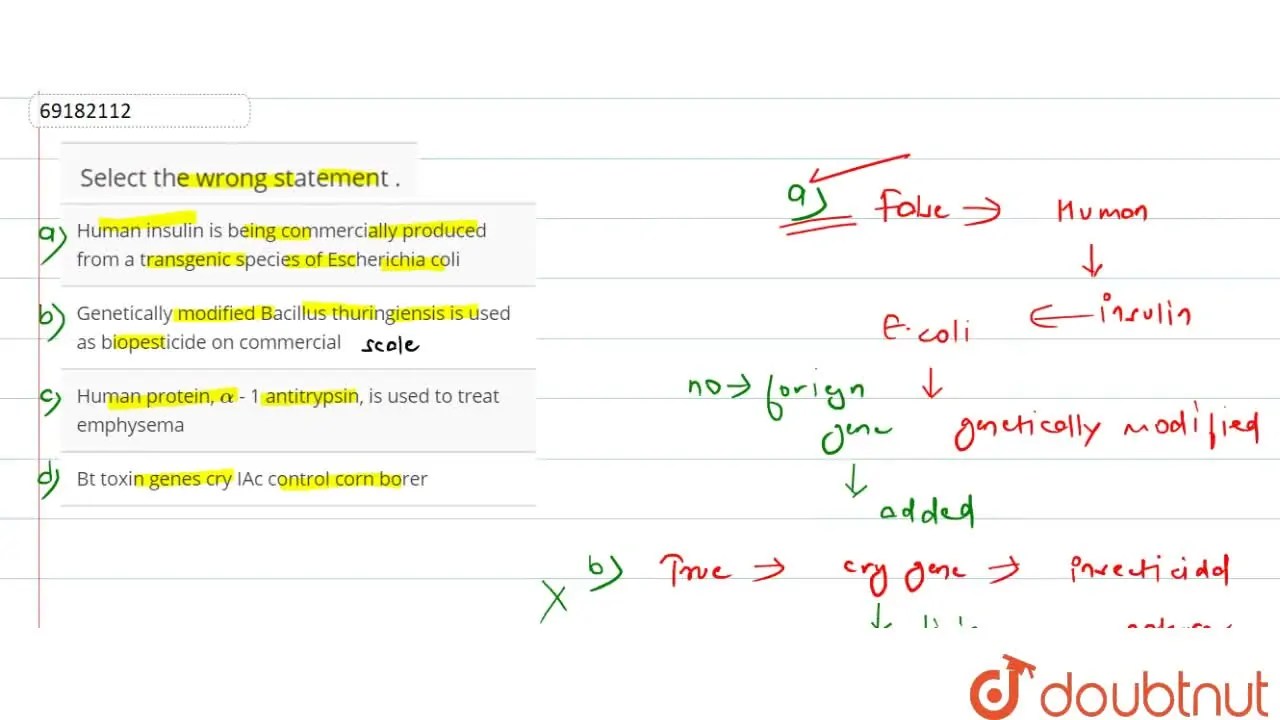 69182112
Select the wrong statement .
a) Human insulin is being commercially produced
from a transgenic species of Escherichia coli
b) Genetically modified Bacillus thuringiensis is used
as biopesticide on commercial scale
c) Human protein, α - 1 antitrypsin, is used to treat
emphysema
d) Bt toxin genes cry IAc control corn borer
a) False → Human
↓
E.coli ← insulin
no → forign ↓
gene genetically modified
↓
added
X b) True → cry gene → insecticidal
↓
doubtnut